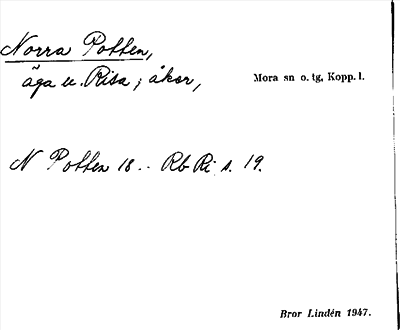 Norra Potten,
äga u. Risa; åker,
Mora sn o. tg, Kopp. l.
N Potten 18.. Rb Ri s. 19.
Bror Lindén 1947.